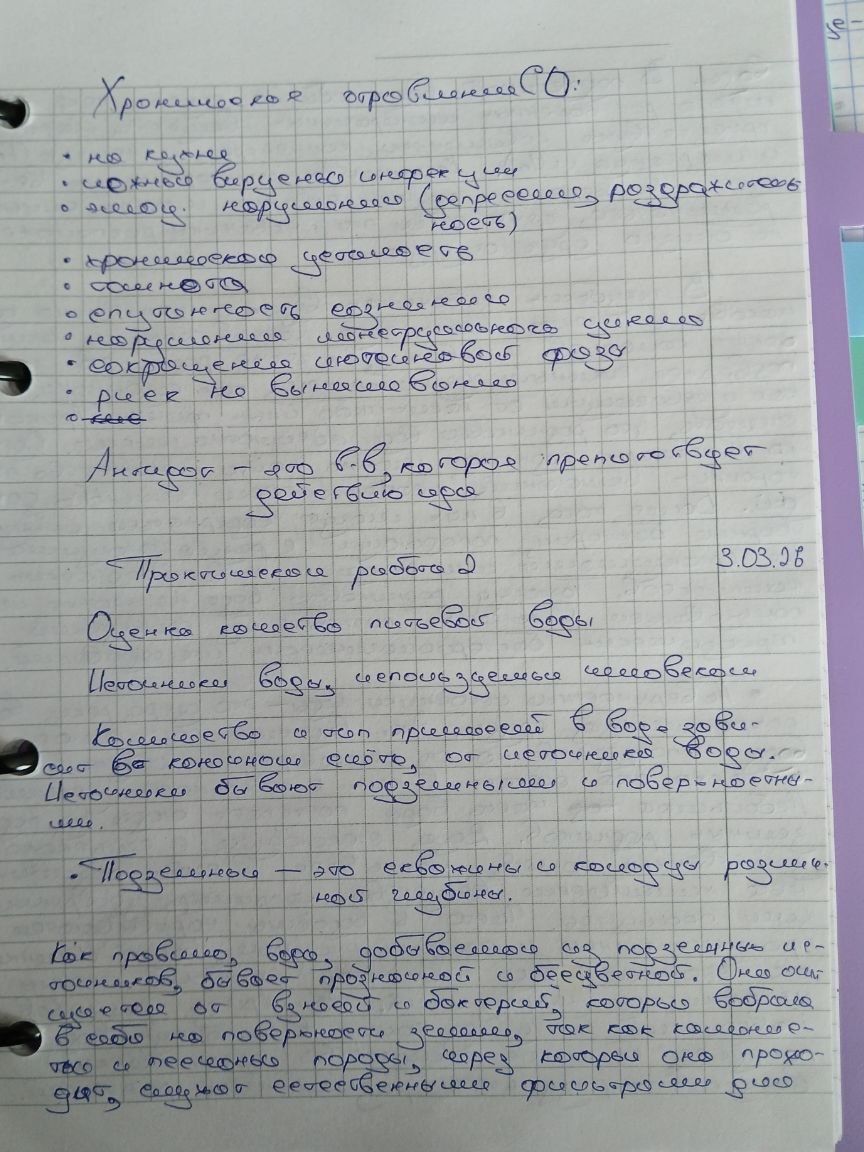 Хроническое отравление CO:
• на кухне
• ложные вирусные инфекции
• эмоц. нарушения (депрессия, раздражитель
ность)
• хроническая усталость
• тошнота
• спутанность сознания
• нарушения менструального цикла
• сокращения лютеиновой фазы
• риск на вынашивание
•
Антидот – это в-в, которое препятствует
действию яда
Практическая работа 2 3.03.26
Оценка качества питьевой воды
Источники воды, используемые человеком
Количество и тип примесей в воде зави-
сит в конечном счёте, от источника воды.
Источники бывают подземными и поверхностны-
ми.
• Подземные – это скважины и колодцы различ-
ной глубины.
Как правило, вода, добываемая из подземных ис-
точников, бывает прозрачной и бесцветной. Она очи
щается от взвесей и бактерий, которые вобрала
в себя на поверхности земли, так как каменис-
тые и песчаные породы, через которые она прохо-
дит, служат естественными фильтрами для